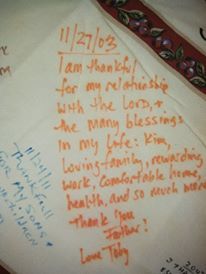 11/27/03
I am thankful
for my relationship
with the Lord, +
the many blessings
in my life: Kim,
loving family, rewarding
work, comfortable home,
health, and so much more
Thank You
Father!
Love Toby
11/24/11
Thankful
for my sons +